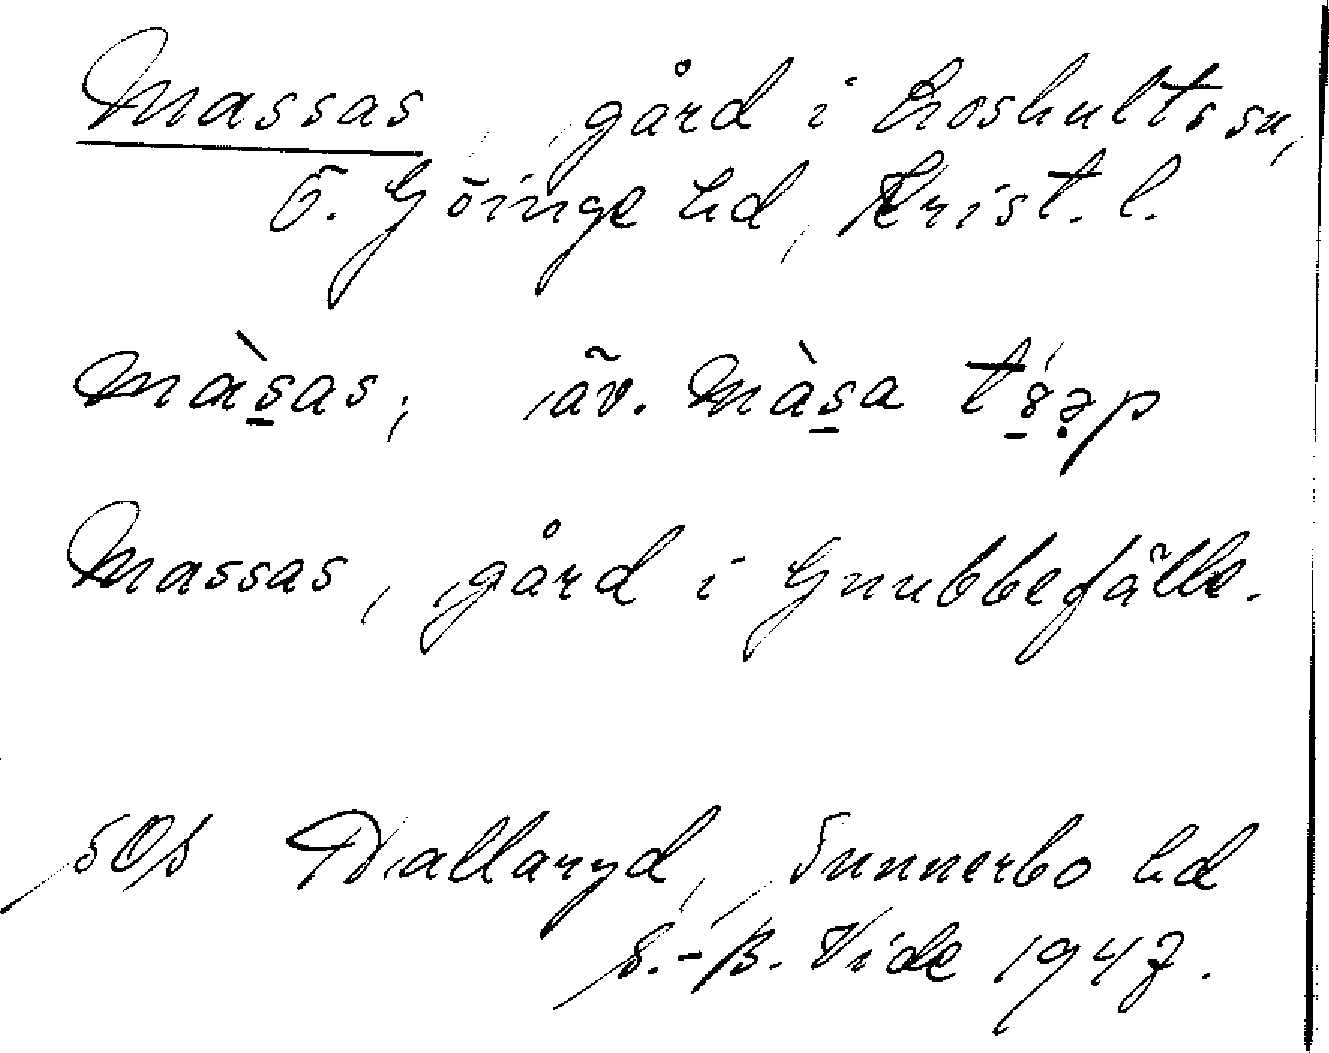 Massas, gård i Loshults sn,
Ö. Göinge hd, Krist. l.
màs̱as, äv. màs̱a
Massas, gård i Gnubbefälle.
SOS Hallaryd, Sunnerbo hd
S.-B. Vide 1947.